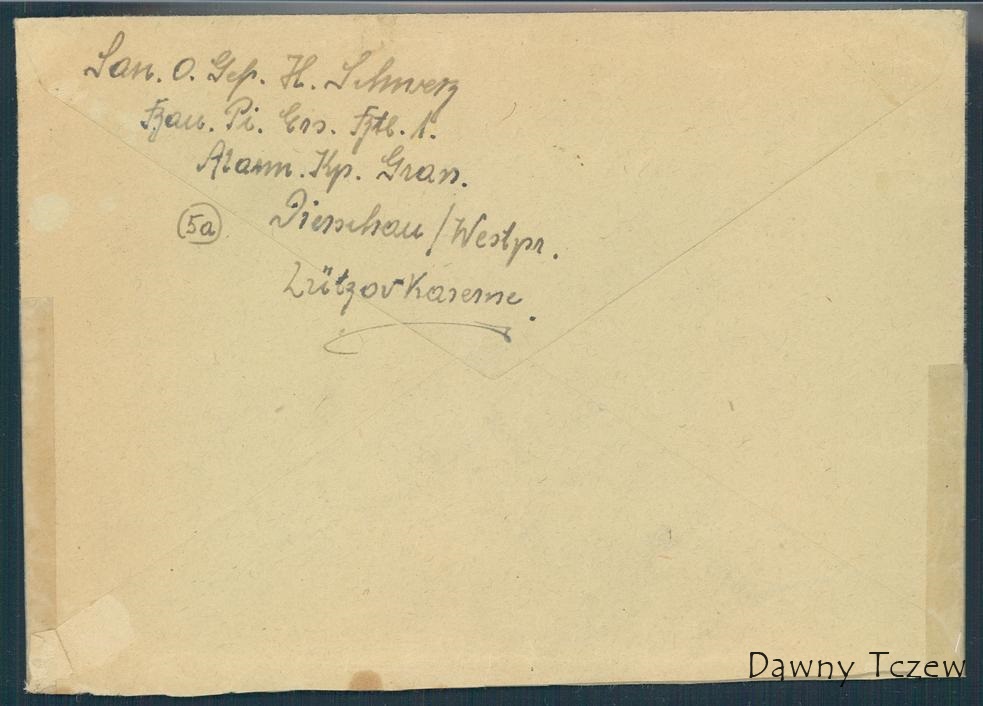 San. O. Gef. H. Schwerz
Bau. Pi. Ers. Btl. 1.
Alarm. Kp. Gran.
5a Dierschau / Westpr.
Lützov Kaserne.
Dawny Tczew